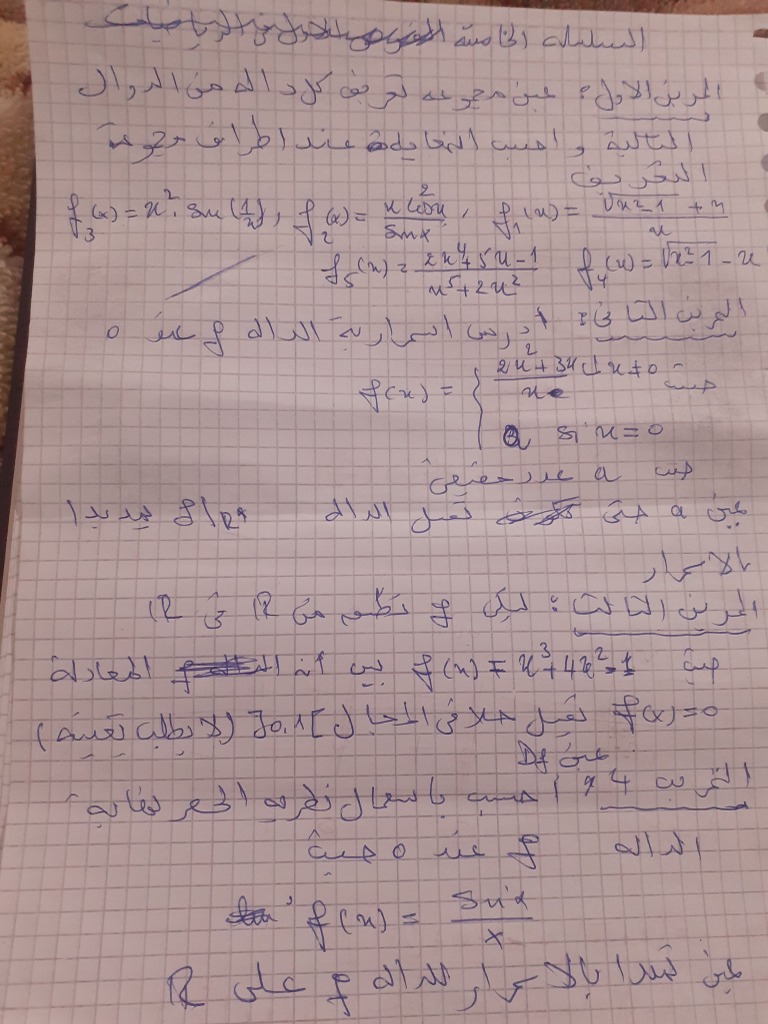 السلسلة الخامسة
التمرين الاول: عين مجموعة تعريف كل دالة من الدوال
التالية و احسب النهاية عند اطراف مجموعة
التعريف
f₁(x) = (√(x²-1) + x)/x , f₂(x) = (x cos²x)/(sin x) , f₃(x) = x². sin(1/x)
f₄(x) = √(x²-1) - x f₅(x) = (2x⁴+5x-1)/(x⁵+2x²)
التمرين الثاني: ادرس استمرارية الدالة f عند 0
حيث f(x) = { (2x²+3x)/x si x≠0
a si x=0
حيث a عدد حقيقي
عين a حتى تقبل الدالة f/R* تمديدا
بالاستمرار
التمرين الثالث: ليكن f تطبيق من R في R
حيث f(x) = x³+4x²-1 بين انه المعادلة
f(x)=0 تقبل حلا في المجال ]0,1[ (لا يطلب تعيينه)
عين Df
التمرين 4: احسب باستعمال نظرية الحصر نهاية
الدالة f عند 0 حيث
f(x) = sin x / x
عين تمديدا بالاستمرار للدالة f على R